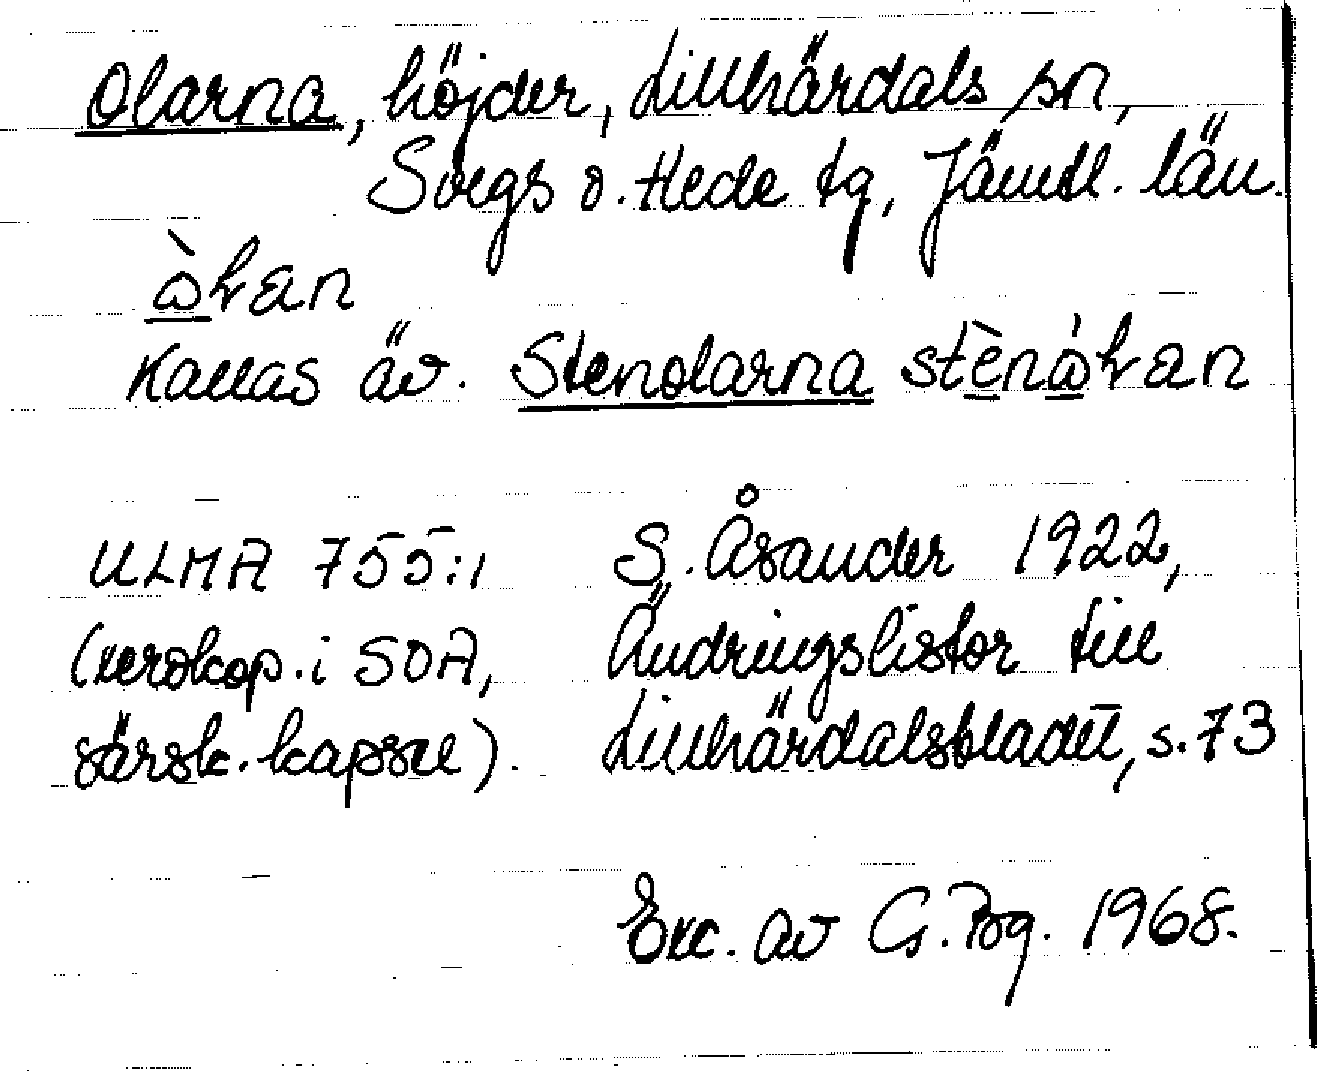 Olarna, höjder, Lillhärdals sn,
Svegs o. Hede tg, Jämtl. län.
Kallas äv. Stenolarna
ULMA 755:1 S. Åsander 1922,
(xerokop. i SOA, Ändringslistor till
särsk. kapsel). Lillhärdalsbladet, s. 73
Exc. av G. Bg. 1968.